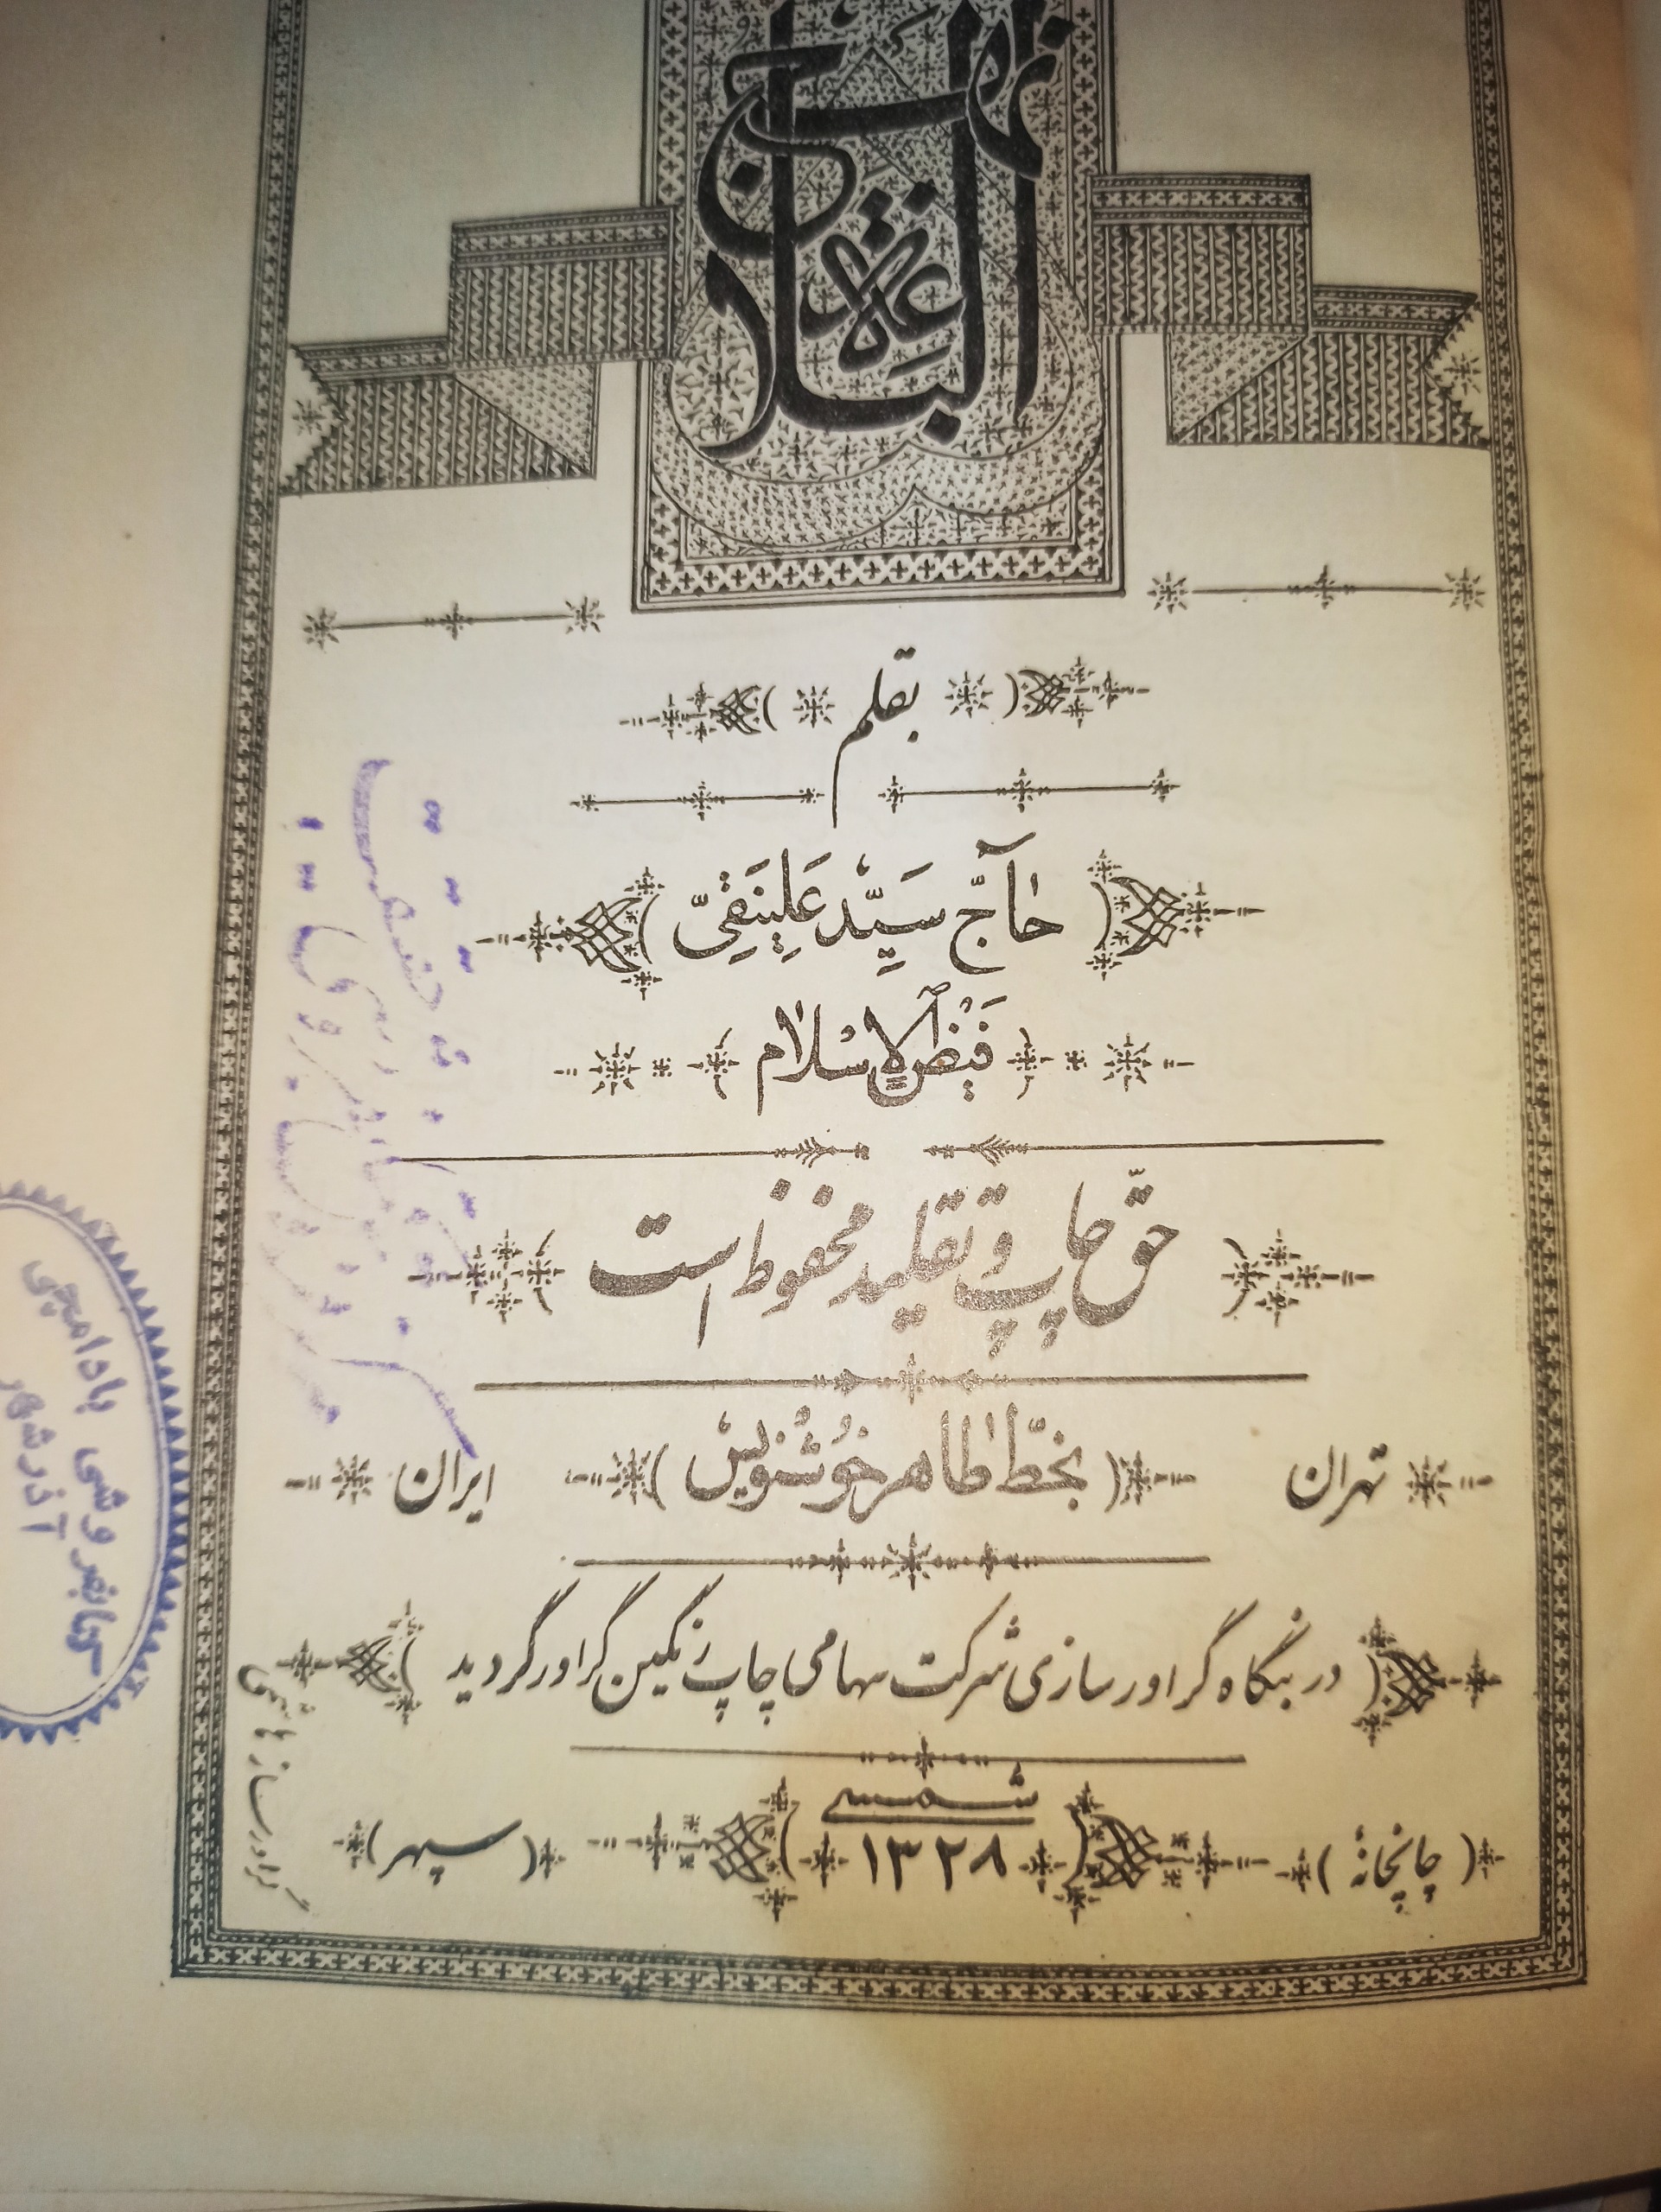 نهج البلاغة
بقلم
حاج سَیِّد عَلینَقیّ
فَیْضُ الاِسْلام
حقّ چاپ و تقلید محفوظ است
تهران
بخطّ طاهر خوشنویس
ایران
در بنگاه گراورسازی شرکت سهامی چاپ رنگین گراور گردید
شمسی
چاپخانهٔ
۱۳۲۸
سپهر
گراورساز هاشمی
کتابفروشی بادامچی
آذرشهر